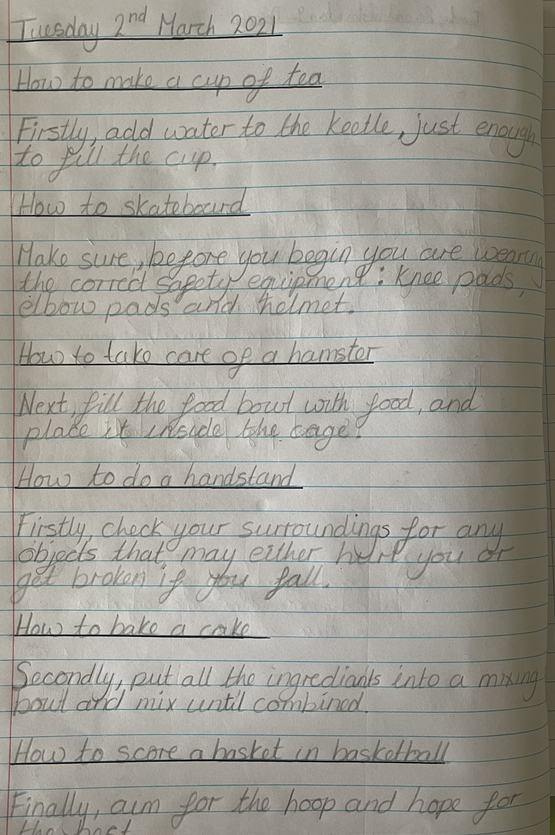 Tuesday 2nd March 2021
How to make a cup of tea
Firstly, add water to the keetle, just enough
to fill the cup.
How to skateboard
Make sure, before you begin you are wearing
the correct safety equipment: Knee pads,
elbow pads and helmet.
How to take care of a hamster
Next, fill the food bowl with food, and
place it inside the cage.
How to do a handstand
Firstly, check your surroundings for any
objects that may either hurt you or
get broken if you fall.
How to bake a cake
Secondly, put all the ingrediants into a mixing
bowl and mix until combined.
How to score a basket in basketball
Finally, aim for the hoop and hope for
the best